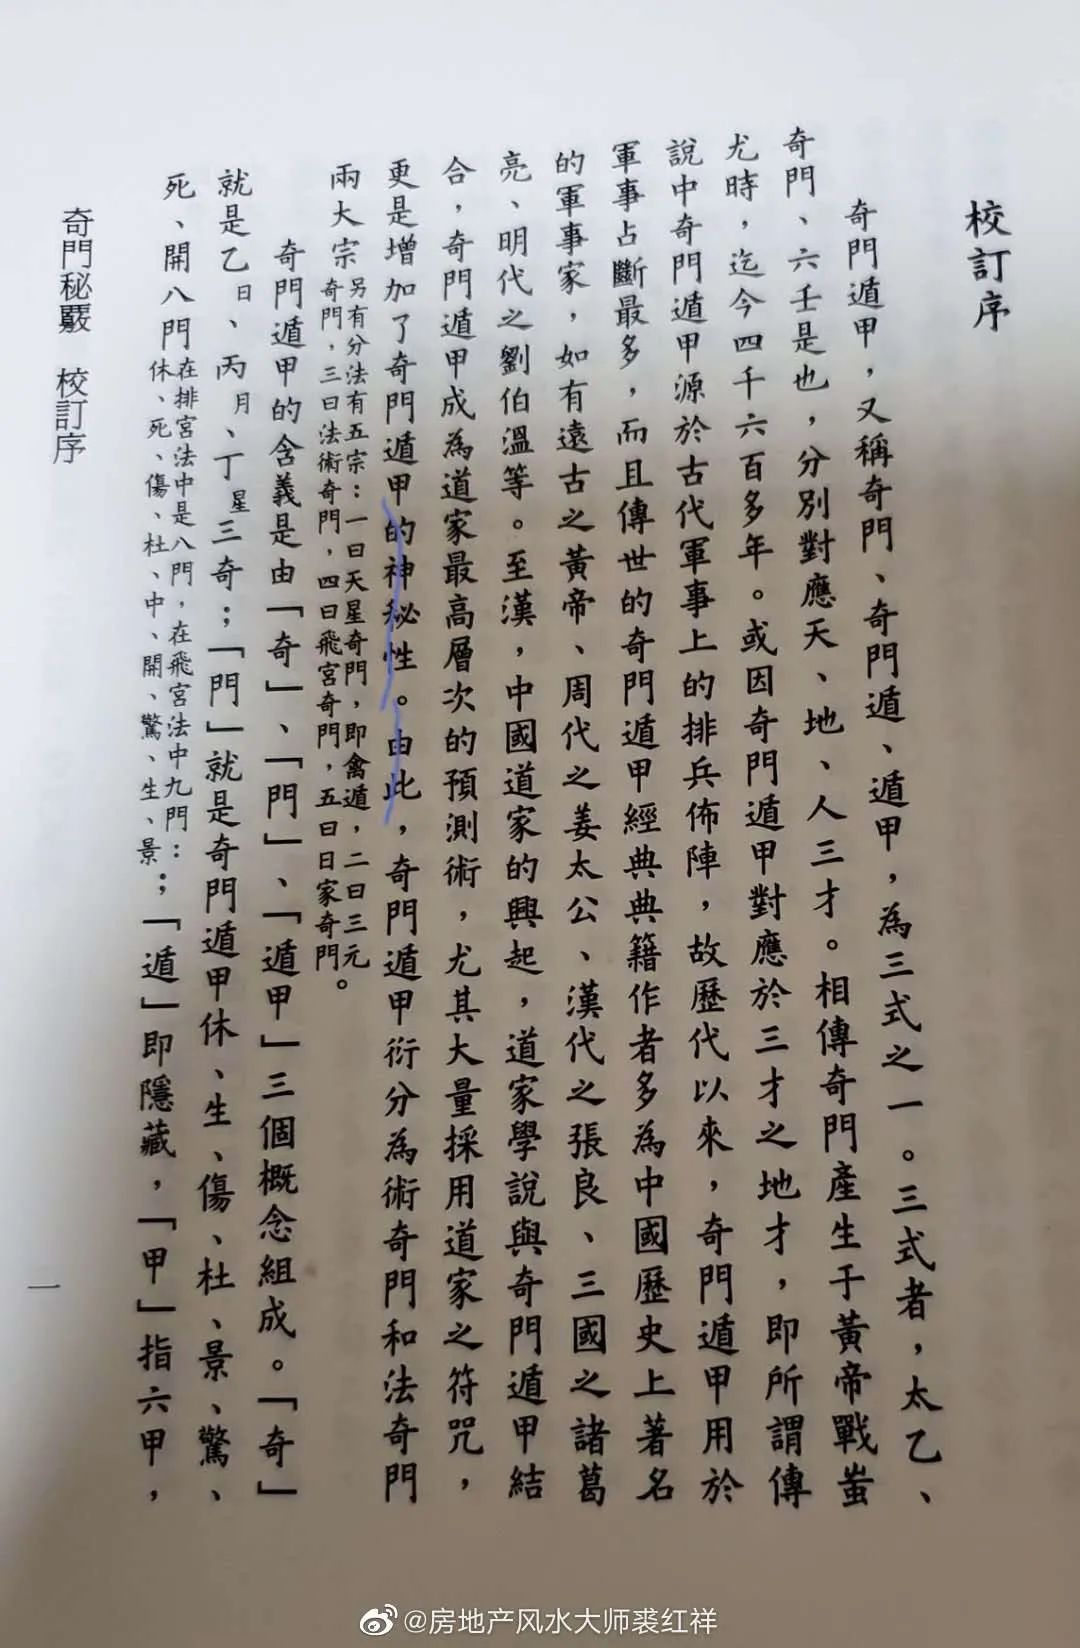 校訂序
奇門遁甲，又稱奇門、奇門遁、遁甲，為三式之一。三式者，太乙、
奇門、六壬是也，分別對應天、地、人三才。相傳奇門產生于黃帝戰蚩
尤時，迄今四千六百多年。或因奇門遁甲對應於三才之地才，即所謂傳
說中奇門遁甲源於古代軍事上的排兵佈陣，故歷代以來，奇門遁甲用於
軍事占斷最多，而且傳世的奇門遁甲經典典籍作者多為中國歷史上著名
的軍事家，如有遠古之黃帝、周代之姜太公、漢代之張良、三國之諸葛
亮、明代之劉伯溫等。至漢，中國道家的興起，道家學說與奇門遁甲結
合，奇門遁甲成為道家最高層次的預測術，尤其大量採用道家之符咒，
更是增加了奇門遁甲的神秘性。由此，奇門遁甲衍分為術奇門和法奇門
兩大宗
另有分法有五宗：一曰天星奇門，即禽遁，二曰三元
奇門，三曰法術奇門，四曰飛宮奇門，五曰日家奇門。
奇門遁甲的含義是由「奇」、「門」、「遁甲」三個概念組成。「奇」
就是乙日、丙月、丁星三奇；「門」就是奇門遁甲休、生、傷、杜、景、驚、
死、開八門
在排宮法中是八門，在飛宮法中九門：
休、死、傷、杜、中、開、驚、生、景
；「遁」即隱藏，「甲」指六甲，
奇門秘竅 校訂序
一
@房地产风水大师裘红祥